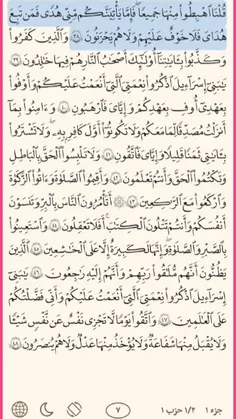 قُلْنَا اهْبِطُوا مِنْهَا جَمِيعًا فَإِمَّا يَأْتِيَنَّكُم مِّنِّي هُدًى فَمَن تَبِعَ
هُدَايَ فَلَا خَوْفٌ عَلَيْهِمْ وَلَا هُمْ يَحْزَنُونَ ٣٨ وَالَّذِينَ كَفَرُوا
وَكَذَّبُوا بِآيَاتِنَا أُولَٰئِكَ أَصْحَابُ النَّارِ هُمْ فِيهَا خَالِدُونَ ٣٩
يَا بَنِي إِسْرَائِيلَ اذْكُرُوا نِعْمَتِيَ الَّتِي أَنْعَمْتُ عَلَيْكُمْ وَأَوْفُوا
بِعَهْدِي أُوفِ بِعَهْدِكُمْ وَإِيَّايَ فَارْهَبُونِ ٤٠ وَآمِنُوا بِمَا
أَنزَلْتُ مُصَدِّقًا لِّمَا مَعَكُمْ وَلَا تَكُونُوا أَوَّلَ كَافِرٍ بِهِ ۖ وَلَا تَشْتَرُوا
بِآيَاتِي ثَمَنًا قَلِيلًا وَإِيَّايَ فَاتَّقُونِ ٤١ وَلَا تَلْبِسُوا الْحَقَّ بِالْبَاطِلِ
وَتَكْتُمُوا الْحَقَّ وَأَنتُمْ تَعْلَمُونَ ٤٢ وَأَقِيمُوا الصَّلَاةَ وَآتُوا الزَّكَاةَ
وَارْكَعُوا مَعَ الرَّاكِعِينَ ٤٣ ۞ أَتَأْمُرُونَ النَّاسَ بِالْبِرِّ وَتَنسَوْنَ
أَنفُسَكُمْ وَأَنتُمْ تَتْلُونَ الْكِتَابَ أَفَلَا تَعْقِلُونَ ٤٤ وَاسْتَعِينُوا
بِالصَّبْرِ وَالصَّلَاةِ وَإِنَّهَا لَكَبِيرَةٌ إِلَّا عَلَى الْخَاشِعِينَ ٤٥ الَّذِينَ
يَظُنُّونَ أَنَّهُم مُّلَاقُو رَبِّهِمْ وَأَنَّهُمْ إِلَيْهِ رَاجِعُونَ ٤٦ يَا بَنِي
إِسْرَائِيلَ اذْكُرُوا نِعْمَتِيَ الَّتِي أَنْعَمْتُ عَلَيْكُمْ وَأَنِّي فَضَّلْتُكُمْ
عَلَى الْعَالَمِينَ ٤٧ وَاتَّقُوا يَوْمًا لَّا تَجْزِي نَفْسٌ عَن نَّفْسٍ شَيْئًا
وَلَا يُقْبَلُ مِنْهَا شَفَاعَةٌ وَلَا يُؤْخَذُ مِنْهَا عَدْلٌ وَلَا هُمْ يُنصَرُونَ ٤٨
جزء ١ ١/٢ حزب ١
٧